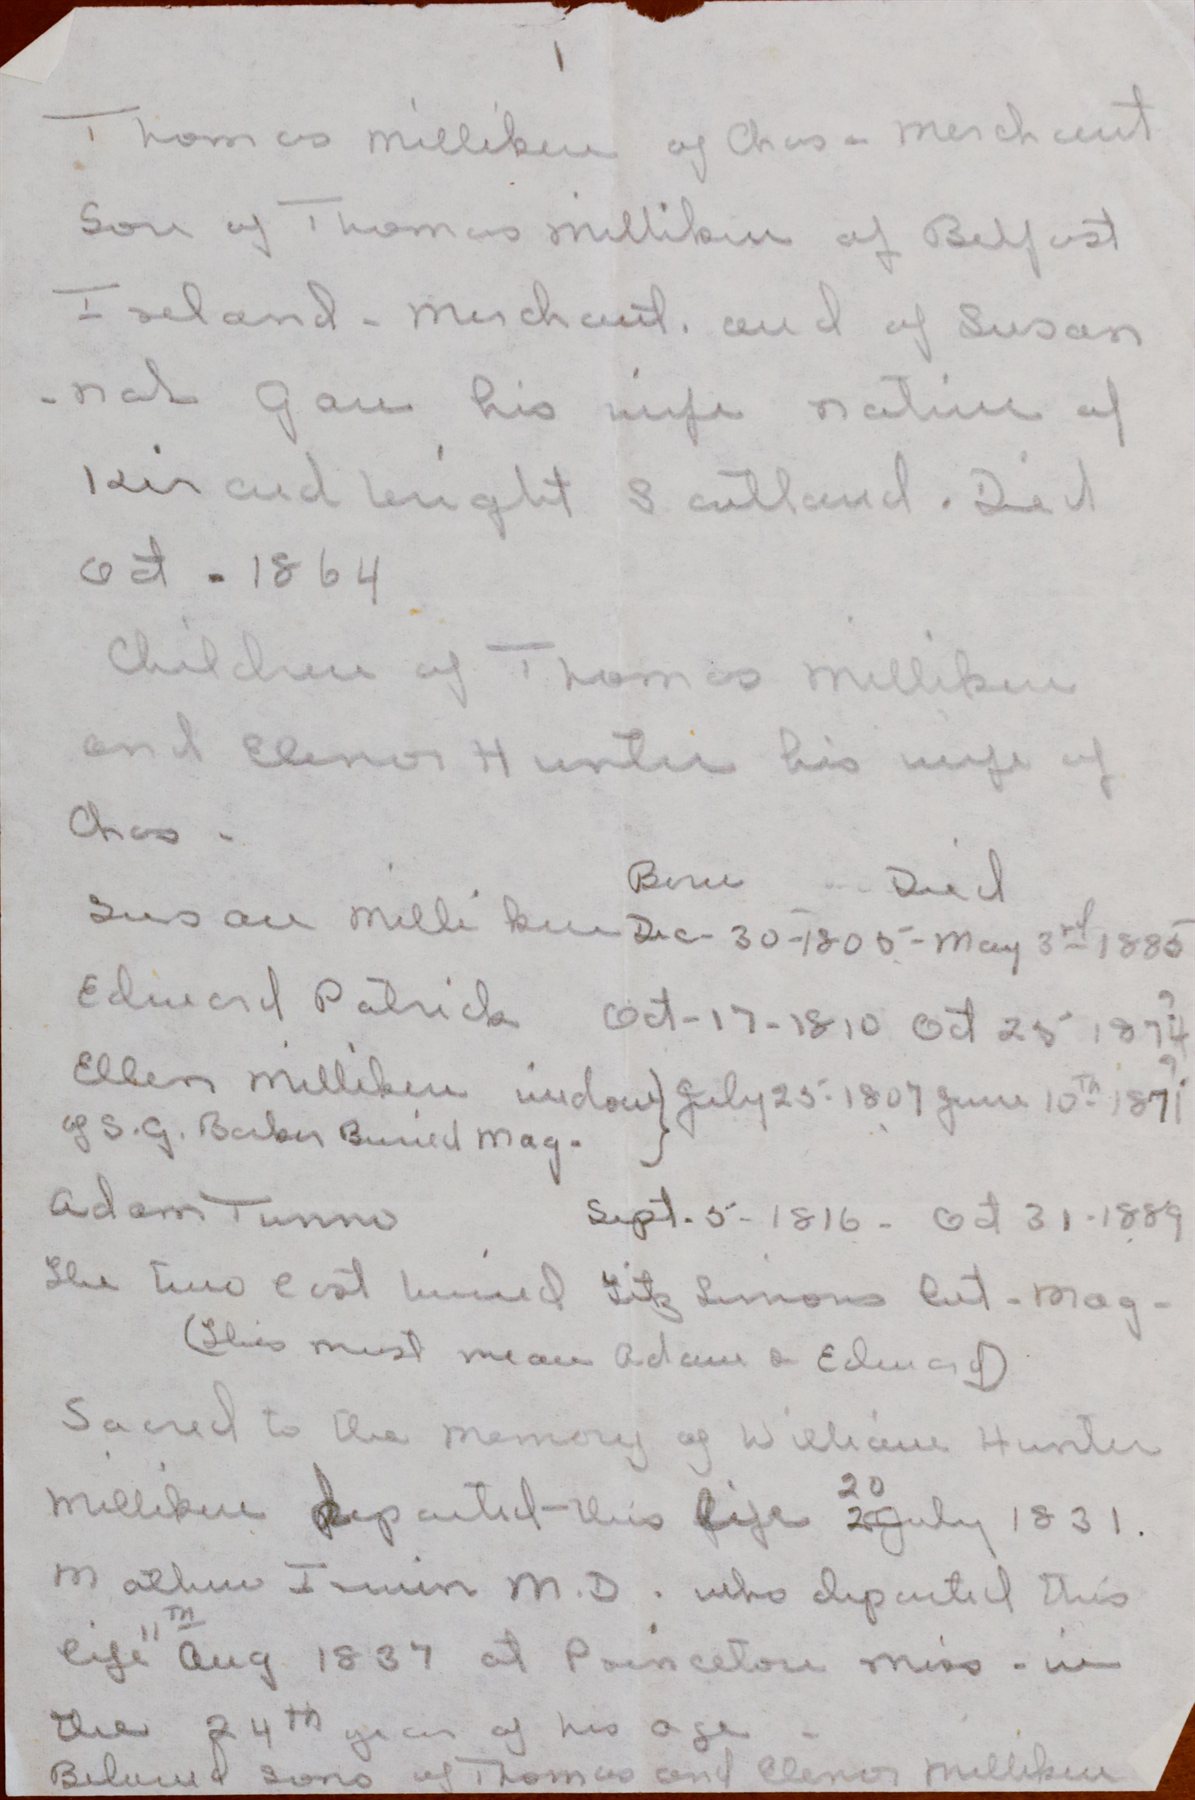 1
Thomas Milliken of Chas - Merchant
Son of Thomas Milliken of Belfast
Ireland - Merchant. and of Susan
-nah Gau his wife native of
Kircudbright Scotland. Died
Oct - 1864
Children of Thomas Milliken
and Elenor Hunter his wife of
Chas -
Born Died
Susan Milliken Dec - 30 - 1805 - May 3rd 1885
Edward Patrick Oct - 17 - 1810 Oct 25 1874 ?
Ellen Milliken widow } July 25 - 1807 June 10th - 1871 ?
of S. G. Barker Buried Mag - }
Adam Tunno Sept. 5 - 1816 - Oct 31 - 1889
The two last buried Fitz Simons lot - Mag -
(This must mean Adam & Edward)
Sacred to the memory of William Hunter
Milliken departed this life 20 July 1831.
Mathew Irwin M.D. who departed this
life 11th Aug 1837 at Princeton Miss - in
the 24th year of his age -
Beloved sons of Thomas and Elenor Milliken